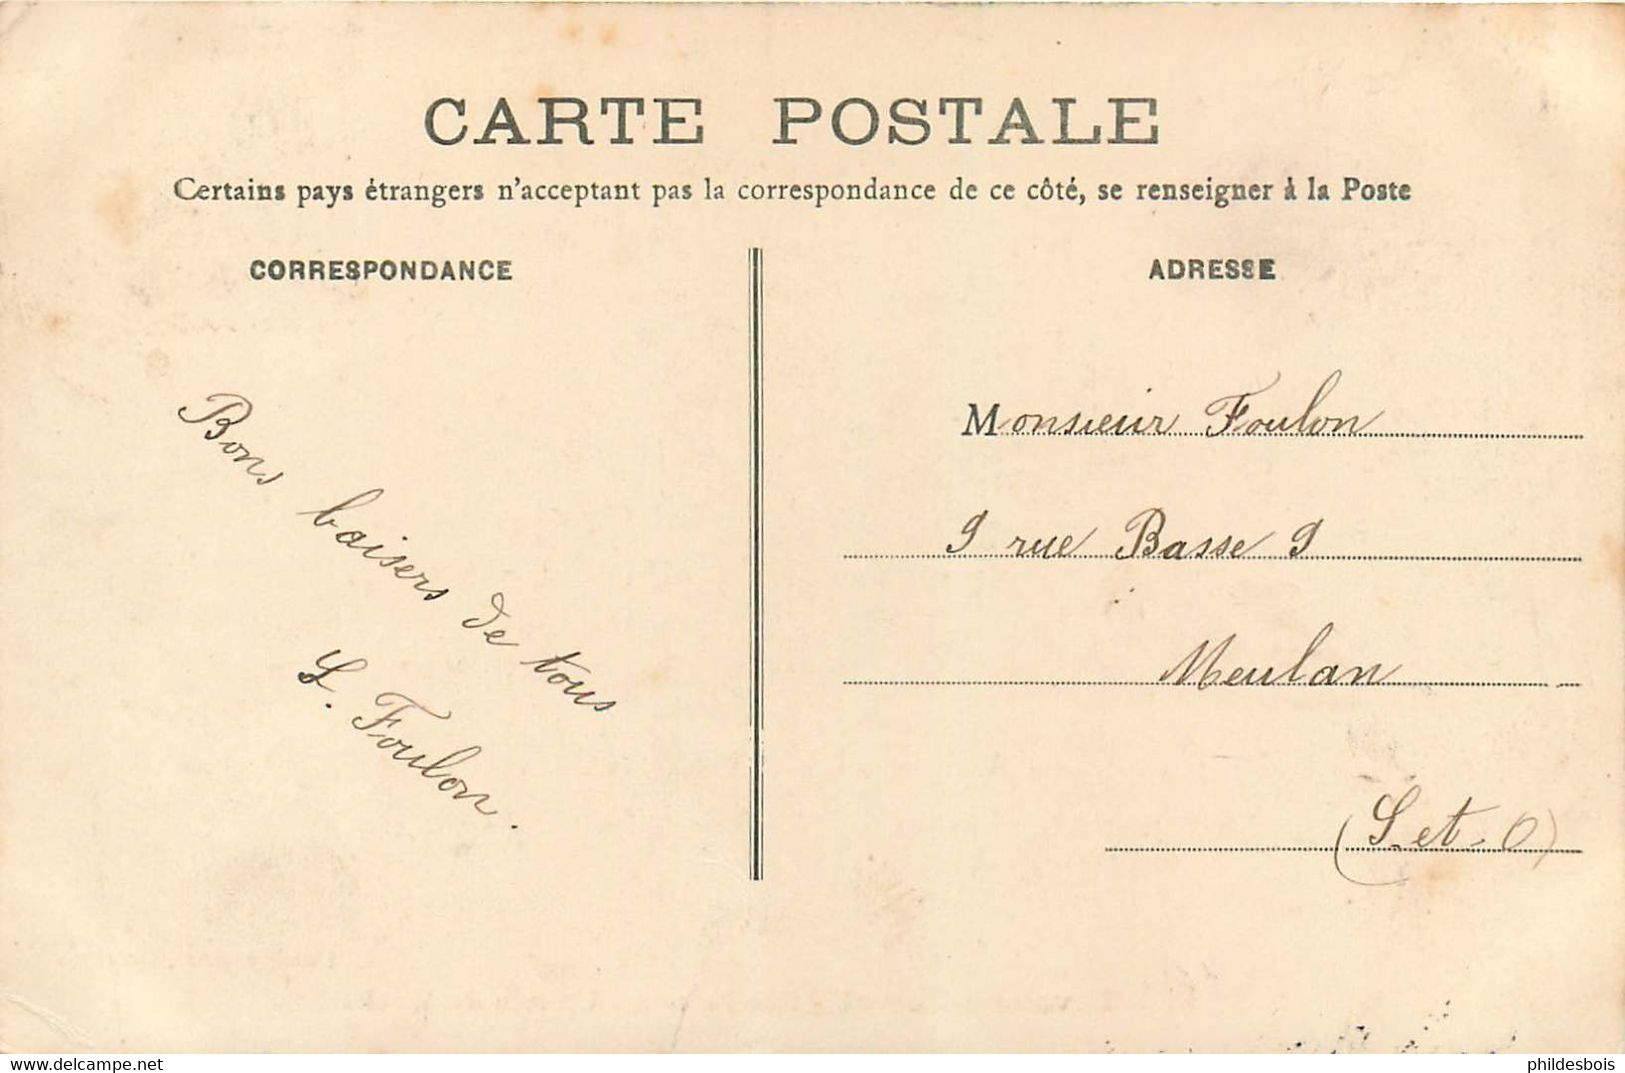 CARTE POSTALE
Certains pays étrangers n'acceptant pas la correspondance de ce côté, se renseigner à la Poste
CORRESPONDANCE
Bons baisers de tous
L. Foulon.
ADRESSE
Monsieur Foulon
9 rue Basse 9
Meulan
(S. et. O)
the-postcard.com
phildesbois